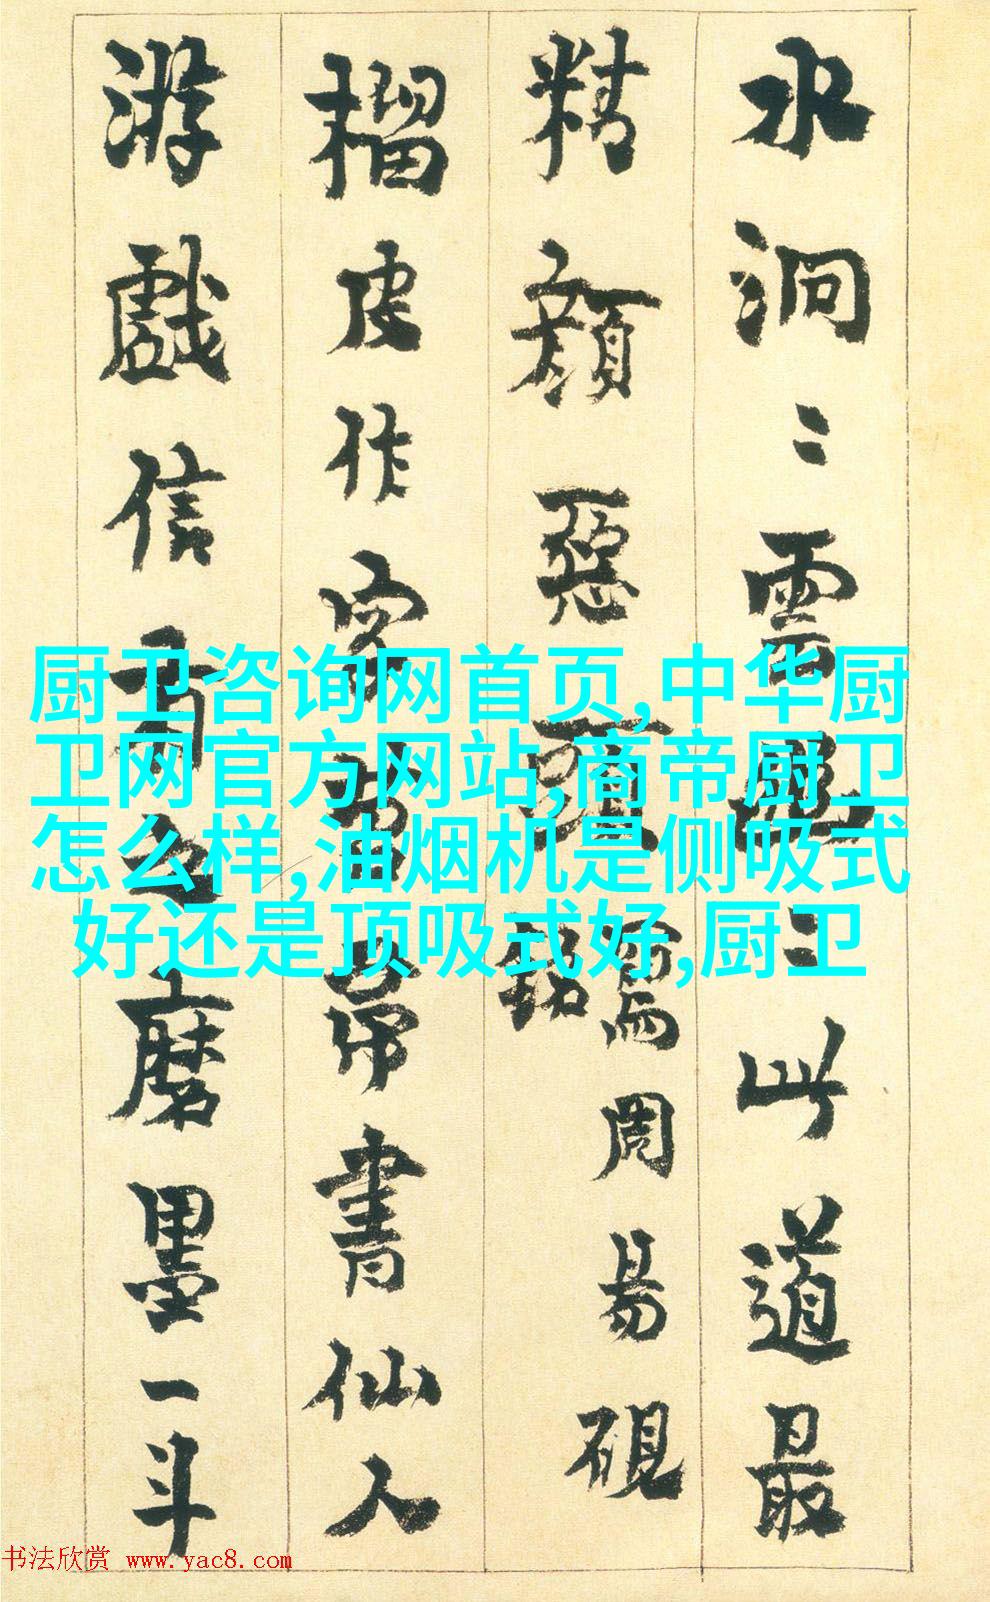 水洞〻雲興〻此道最
精顏惡頭
銘
寫周易硯
榴皮作字
帚書仙人
游戲信
磨墨一斗
厨卫咨询网首页,中华厨
卫网官方网站,商帝厨卫
怎么样,油烟机是侧吸式
好还是顶吸式好,厨卫
书法欣赏 www.yac8.com